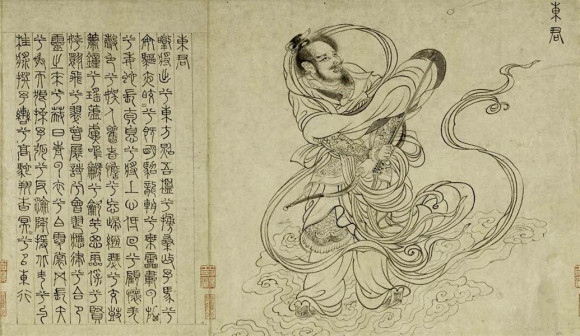 東君
東君
暾將出兮東方照吾檻兮扶桑撫余馬兮
安驅夜皎兮既明駕龍輈兮乘雷載雲旗
兮委蛇長太息兮將上心低回兮顧懷羌
聲色兮娛人觀者憺兮忘歸緪瑟兮交鼓
簫鐘兮瑤虡鳴篪兮吹竽思靈保兮賢
姱翾飛兮翠曾展詩兮會舞應律兮合節
靈之來兮蔽日青雲衣兮白霓裳舉長矢
兮射天狼操余弧兮反淪降援北斗兮酌
桂漿撰余轡兮高駝翔杳冥兮以東行